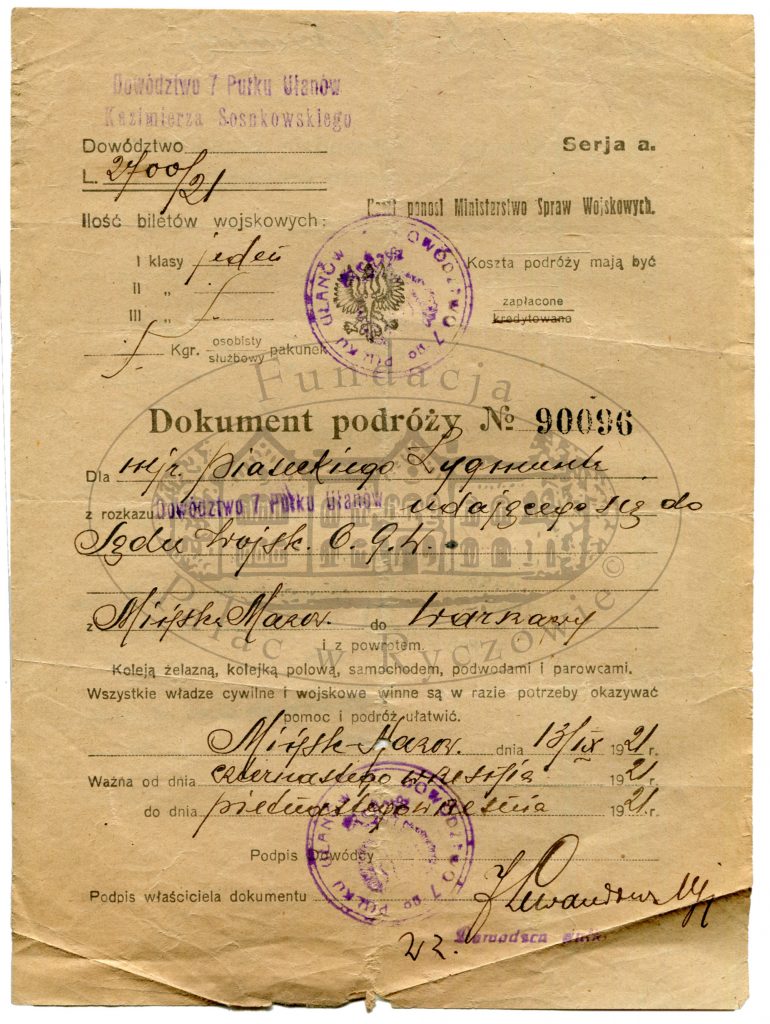 Dowództwo 7 Pułku Ułanów
Kazimierza Sosnkowskiego
Dowództwo
Serja a.
L. 2700/21
Koszt ponosi Ministerstwo Spraw Wojskowych.
Ilość biletów wojskowych:
I klasy jeden
Koszta podróży mają być
II "
zapłacone
III "
kredytowane
Kgr. osobisty
służbowy pakunek
DOWÓDZTWO 7 GO PUŁKU UŁANÓW
Fundacja
Dokument podróży № 90096
Dla mjr. Piaseckiego Zygmunta
z rozkazu Dowództwo 7 Pułku Ułanów udającego się do
Sądu Wojsk. O. G. W.
Pałac w Ryczowie ©
z Mińska Mazow. do Warszawy
i z powrotem.
Koleją żelazną, kolejką polową, samochodem, podwodami i parowcami.
Wszystkie władze cywilne i wojskowe winne są w razie potrzeby okazywać
pomoc i podróż ułatwić.
Mińsk-Mazow. dnia 13/IX 1921 r.
Ważna od dnia czternastego września 1921 r.
do dnia piętnastego września 1921 r.
DOWÓDZTWO 7 GO PUŁKU UŁANÓW
Podpis Dowódcy
Podpis właściciela dokumentu
wz. Dowódca